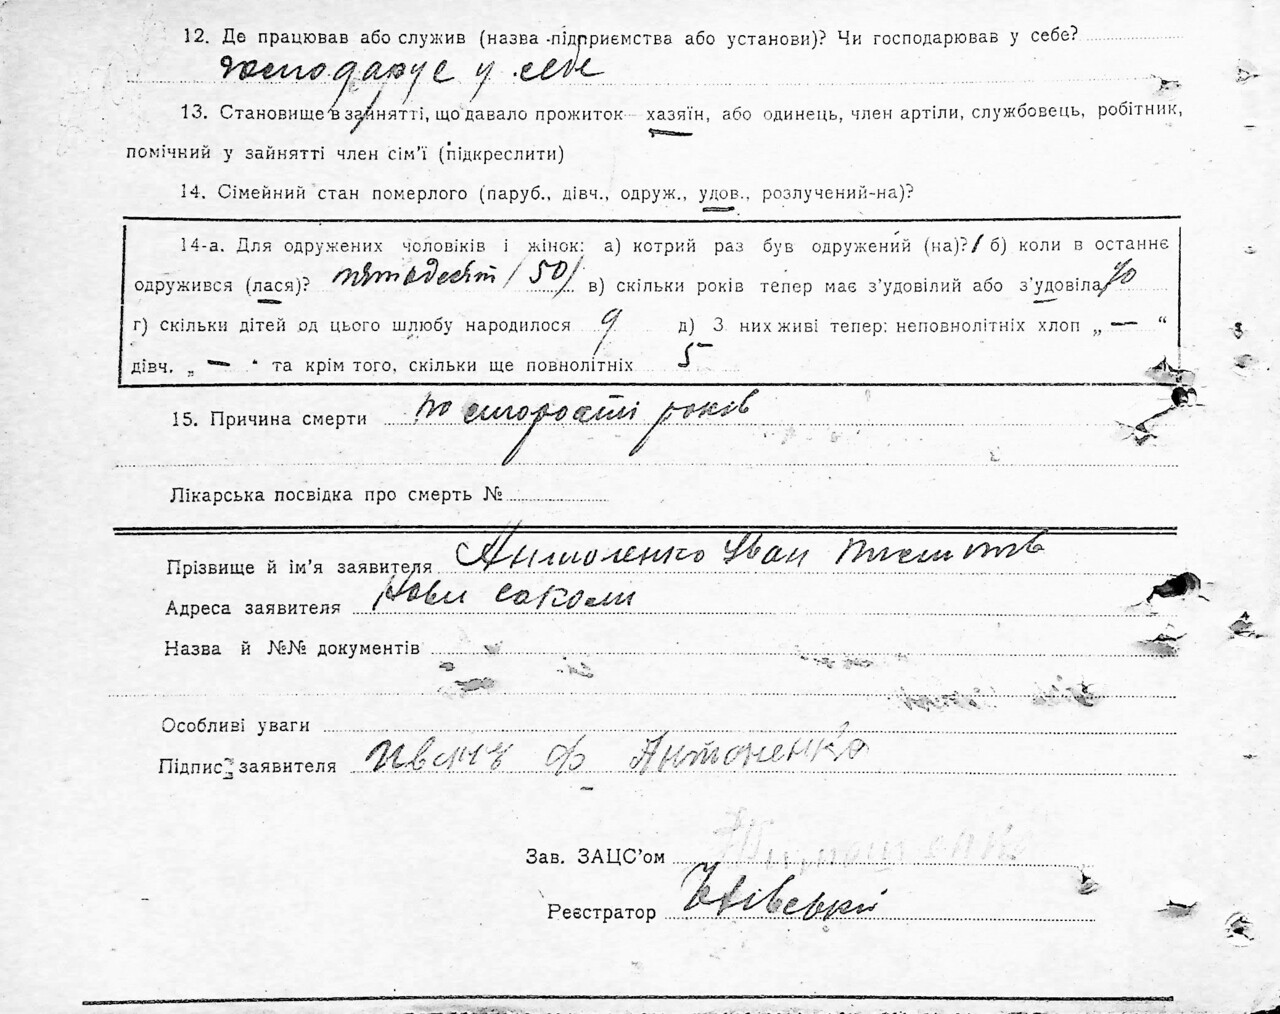 12. Де працював або служив (назва підприємства або установи)? Чи господарював у себе?
господарує у себе
13. Становище в зайнятті, що давало прожиток хазяїн, або одинець, член артіли, службовець, робітник,
помічний у зайнятті член сім'ї (підкреслити)
14. Сімейний стан померлого (паруб., дівч., одруж., удов., розлучений-на)?
14-а. Для одружених чоловіків і жінок: а) котрий раз був одружений (на)? 1 б) коли в останнє
одружився (лася)? пятьдесят /50/ в) скільки років тепер має з'удовілий або з'удовіла
г) скільки дітей од цього шлюбу народилося 9 д) З них живі тепер: неповнолітніх хлоп „ — “
дівч. „ — “ та крім того, скільки ще повнолітніх 5
15. Причина смерти по старості років
Лікарська посвідка про смерть №
Прізвище й ім'я заявителя Антоненко Иван
Адреса заявителя Нові соколи
Назва й №№ документів
Особливі уваги
Підпис заявителя Иванъ Ф Антоненко
Зав. ЗАЦС'ом
Реєстратор